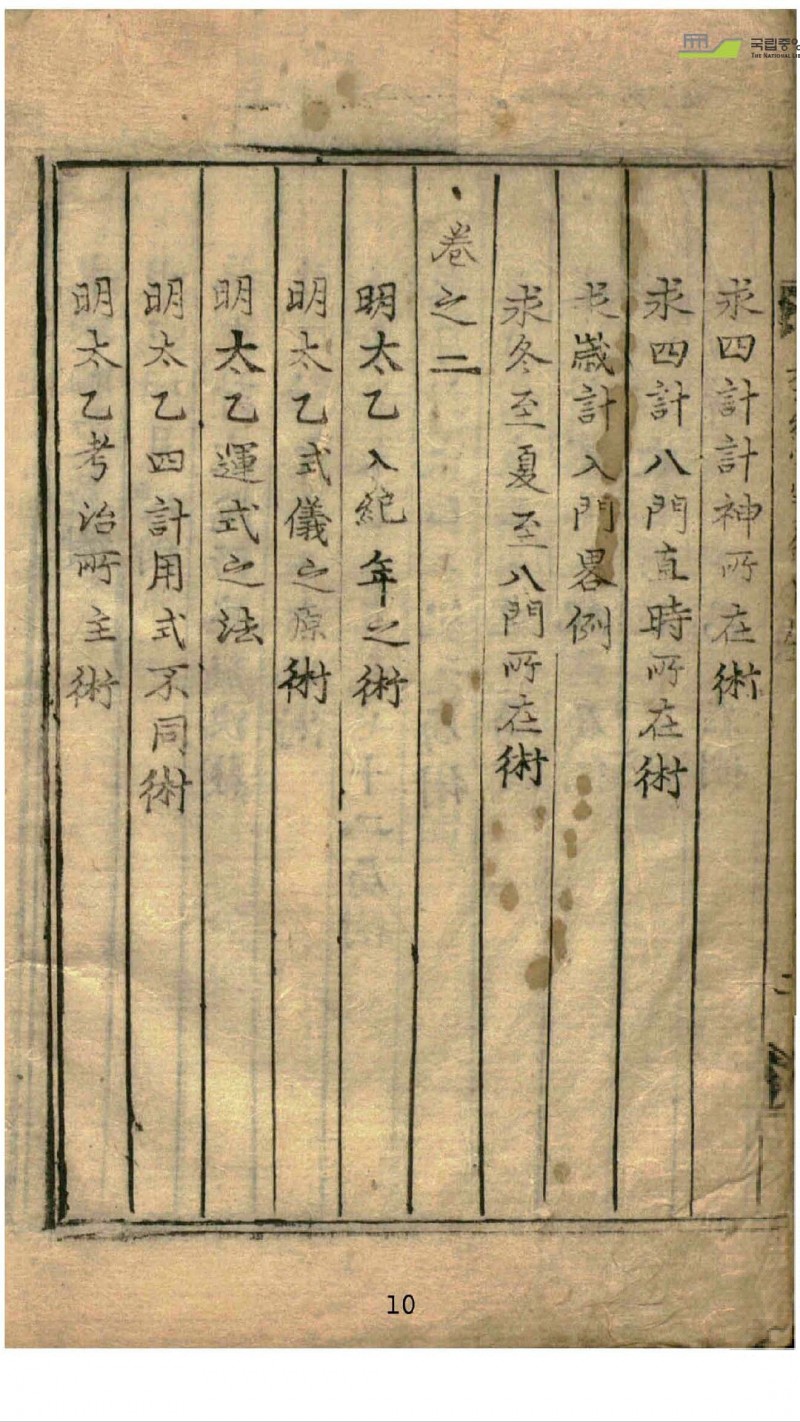 국립중앙
THE NATIONAL LIB
求四計計神所在術
求四計八門直時所在術
求歲計入門畧例
求冬至夏至八門所在術
卷之二
明太乙入紀年之術
明太乙式儀之原術
明太乙運式之法
明太乙四計用式不同術
明太乙考治所主術
10